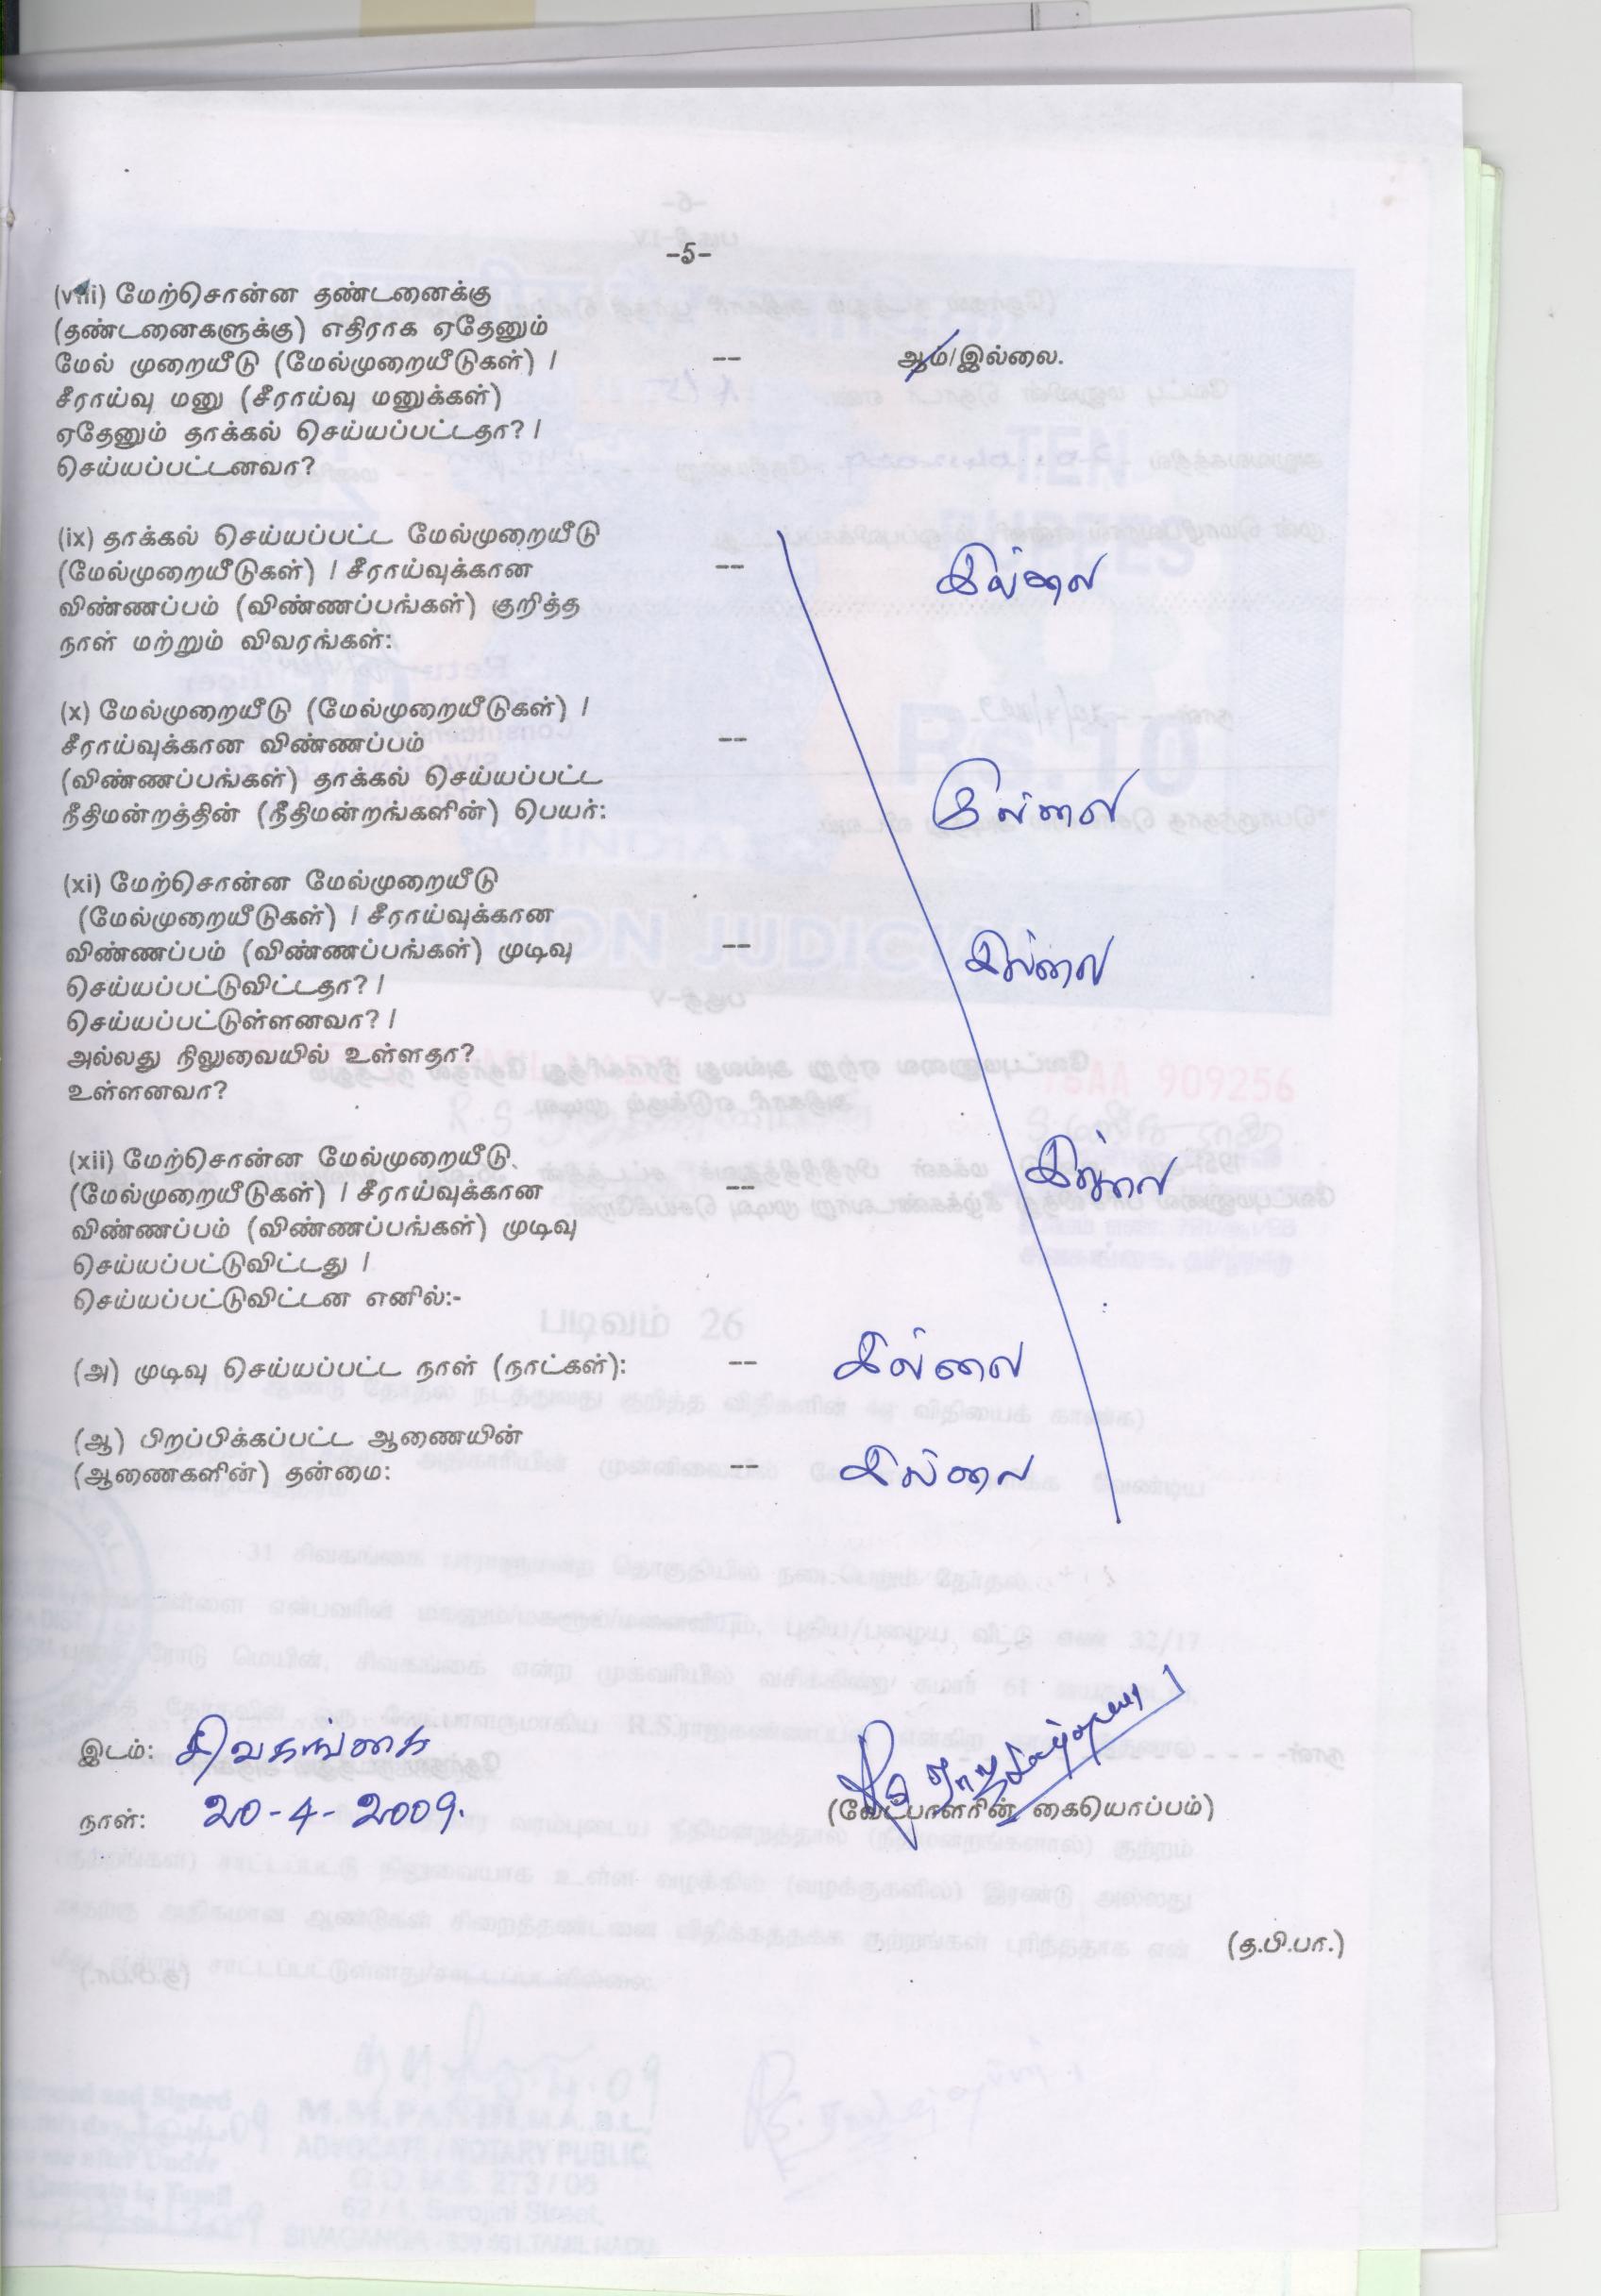 -5-
(viii) மேற்சொன்ன தண்டனைக்கு
(தண்டனைகளுக்கு) எதிராக ஏதேனும்
மேல் முறையீடு (மேல்முறையீடுகள்) / -- ஆம்/இல்லை.
சீராய்வு மனு (சீராய்வு மனுக்கள்)
ஏதேனும் தாக்கல் செய்யப்பட்டதா? /
செய்யப்பட்டனவா?
(ix) தாக்கல் செய்யப்பட்ட மேல்முறையீடு
(மேல்முறையீடுகள்) / சீராய்வுக்கான -- இல்லை
விண்ணப்பம் (விண்ணப்பங்கள்) குறித்த
நாள் மற்றும் விவரங்கள்:
(x) மேல்முறையீடு (மேல்முறையீடுகள்) /
சீராய்வுக்கான விண்ணப்பம் --
(விண்ணப்பங்கள்) தாக்கல் செய்யப்பட்ட இல்லை
நீதிமன்றத்தின் (நீதிமன்றங்களின்) பெயர்:
(xi) மேற்சொன்ன மேல்முறையீடு
(மேல்முறையீடுகள்) / சீராய்வுக்கான
விண்ணப்பம் (விண்ணப்பங்கள்) முடிவு -- இல்லை
செய்யப்பட்டுவிட்டதா? /
செய்யப்பட்டுள்ளனவா? /
அல்லது நிலுவையில் உள்ளதா?
உள்ளனவா?
(xii) மேற்சொன்ன மேல்முறையீடு
(மேல்முறையீடுகள்) / சீராய்வுக்கான -- இல்லை
விண்ணப்பம் (விண்ணப்பங்கள்) முடிவு
செய்யப்பட்டுவிட்டது /
செய்யப்பட்டுவிட்டன எனில்:-
(அ) முடிவு செய்யப்பட்ட நாள் (நாட்கள்): -- இல்லை
(ஆ) பிறப்பிக்கப்பட்ட ஆணையின்
(ஆணைகளின்) தன்மை: -- இல்லை
இடம்: சிவகங்கை
நாள்: 20-4-2009.
(வேட்பாளரின் கையொப்பம்)
(த.பி.பா.)